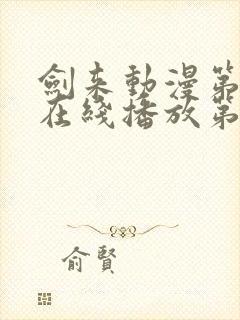 劍来動漫第
在綫播放第
俞賢